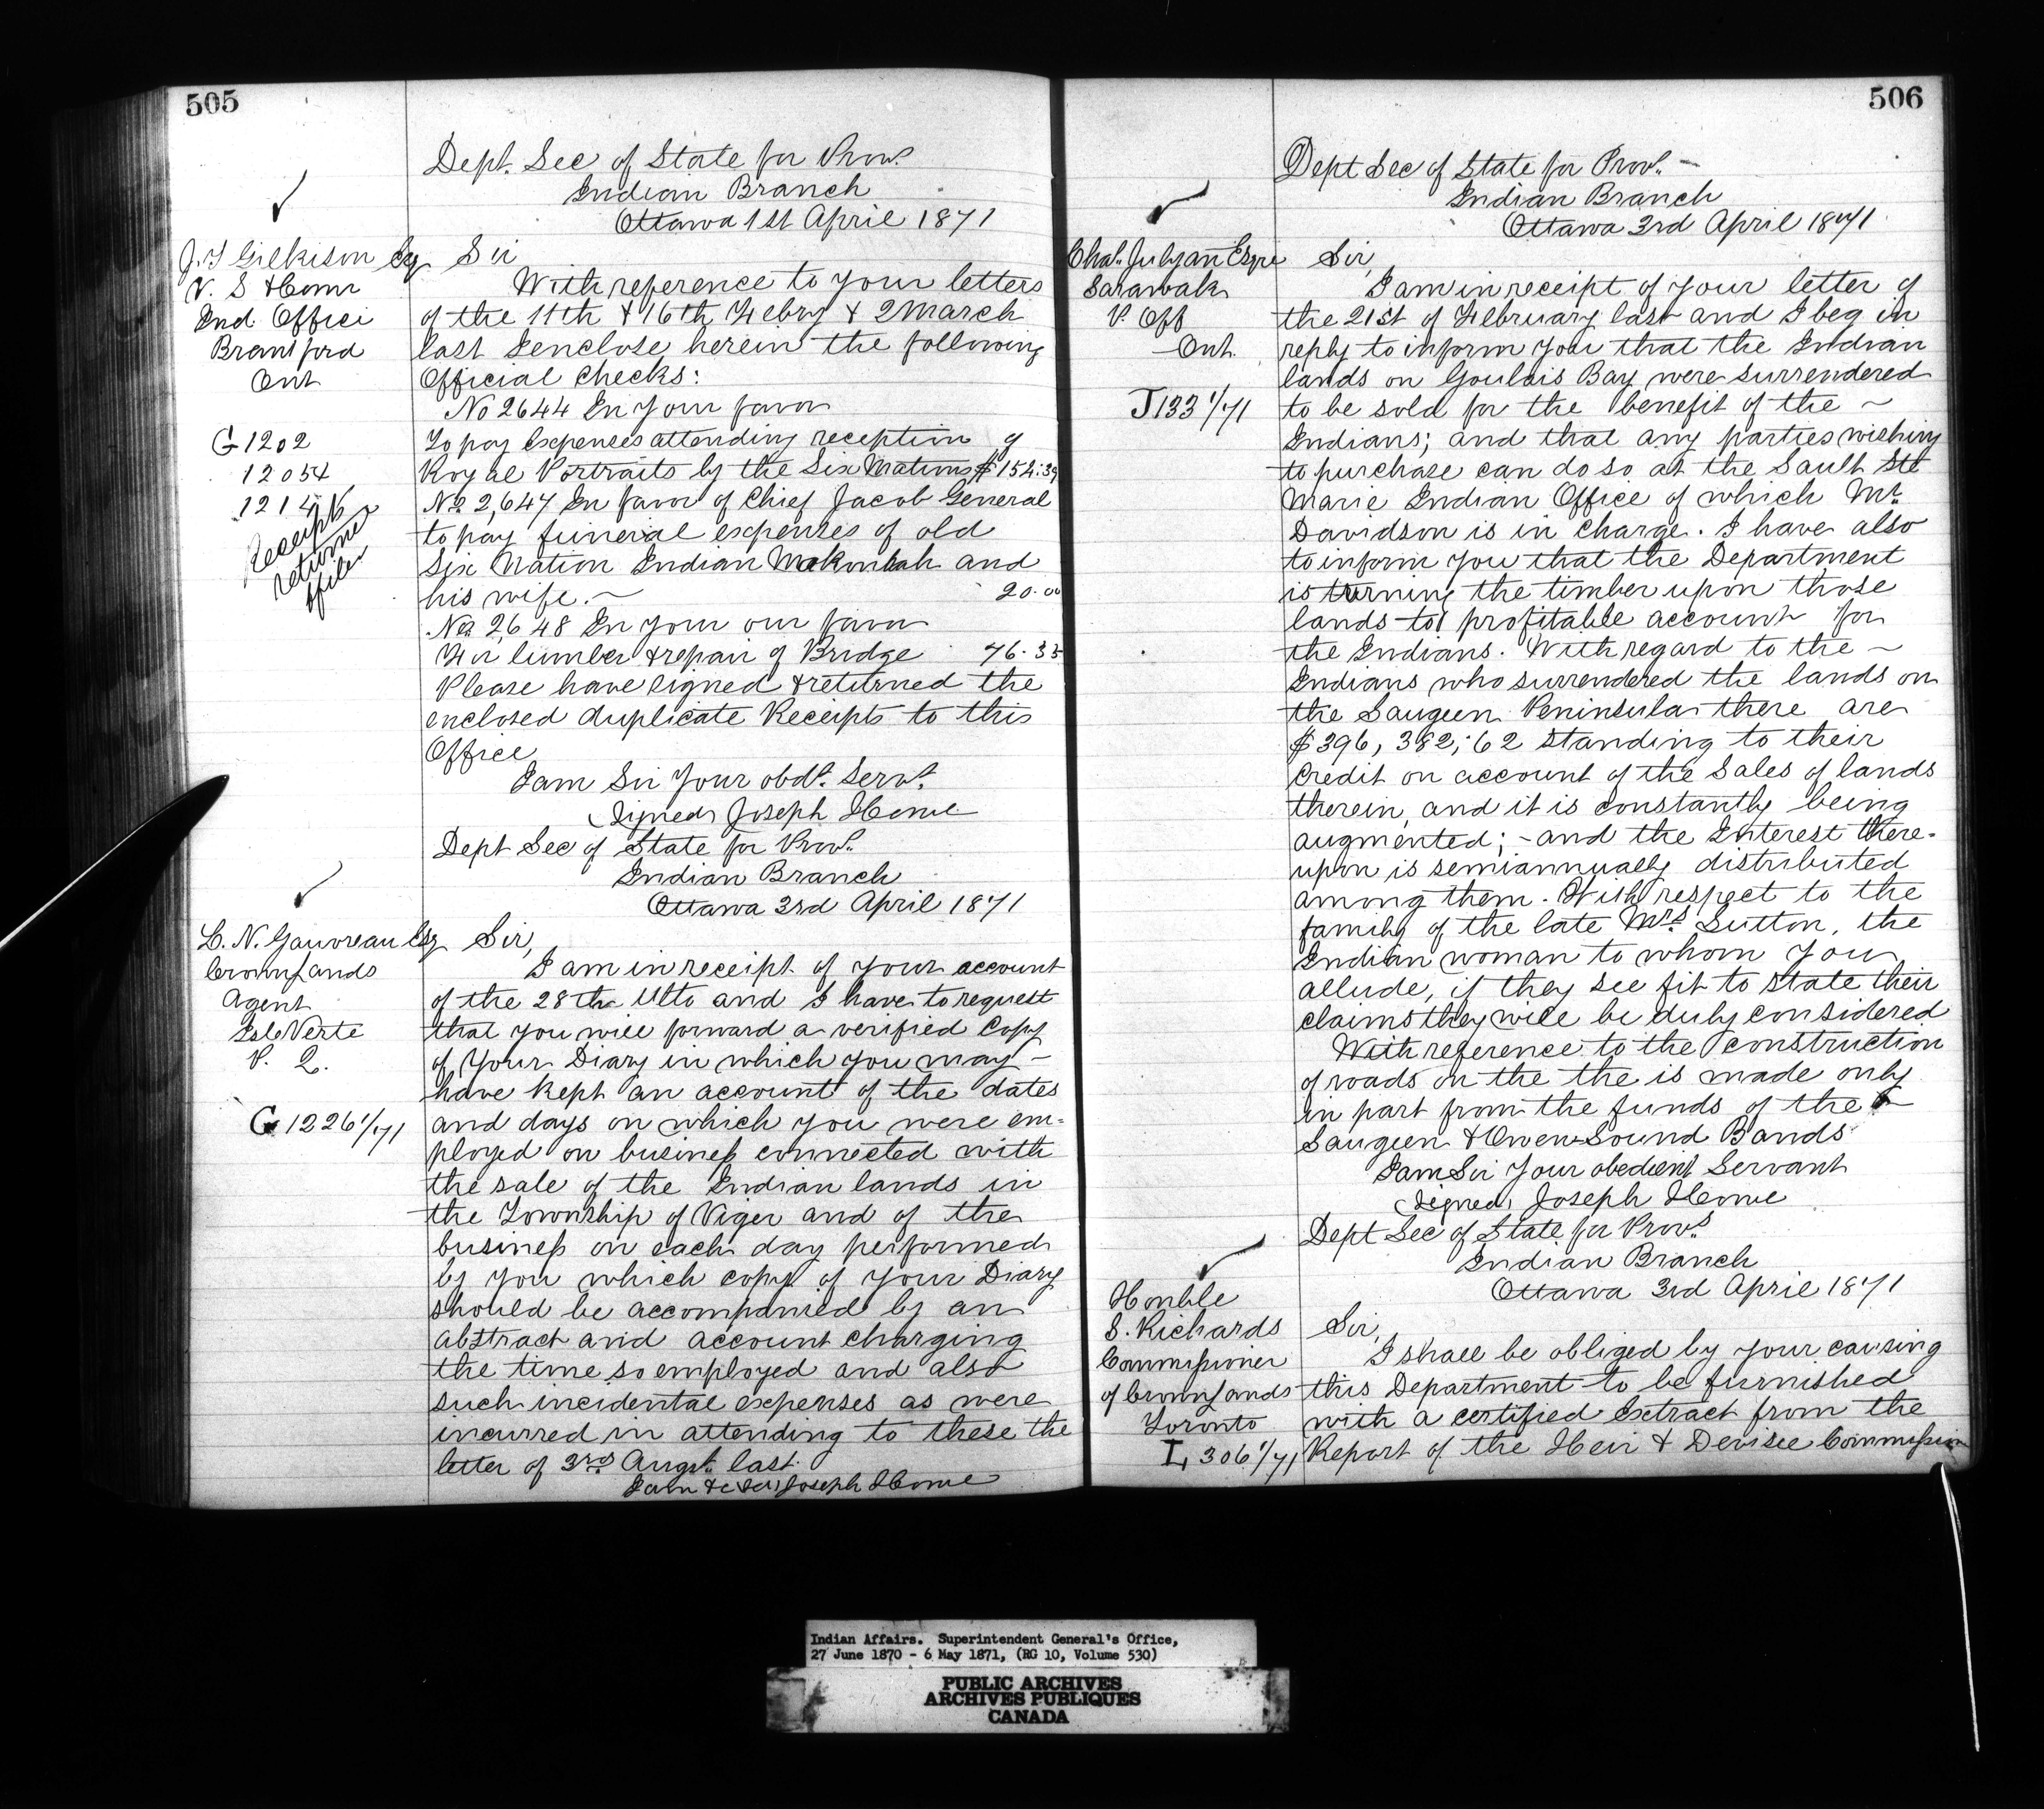 505
Dept. Sec of State for Provs
Indian Branch
Ottawa 1st April 1871
J. T Gilkison Esq
V. S & Comr
Ind. Office
Brantford
Ont
G 1202
12054
1214
Receipts
returned
& filed
Sir
With reference to your letters
of the 11th & 16th Febry & 2 March
last I enclose herein the following
Official Checks:
No 2644 In your favor
To pay expenses attending reception of
Royal Portraits by the Six Nations $ 154.39
No 2,647 In favor of Chief Jacob General
to pay funeral expenses of old
Six Nation Indian and
his wife. ~ 20.00
No 2,648 In your own favor
For lumber & repair of Bridge 76.35
Please have signed & returned the
enclosed duplicate Receipts to this
Office
I am Sir Your obdt. Servt.
(Signed) Joseph Howe
Dept Sec of State for Provs.
Indian Branch
Ottawa 3rd April 1871
L. N. Gauvreau Esq
Crown Lands
Agent
Isle Verte
P. Q.
G 1226 1/71
Sir,
I am in receipt of your account
of the 28th Ulto and I have to request
that you will forward a verified Copy
of Your Diary in which you may –
have kept an account of the dates
and days on which you were em=
ployed on business connected with
the sale of the Indian lands in
the Township of Viger and of the
business on each day performed
by you which copy of your Diary
should be accompanied by an
abstract and account charging
the time so employed and also
such incidental expenses as were
incurred in attending to these the
letter of 3rd Augst. last.
I am &c (Sd) Joseph Howe
506
Dept Sec of State for Provs. –
Indian Branch
Ottawa 3rd April 1871
Chas. Julyan Esqre
Sarawak
P. Off
Ont.
J 133 1/71
Sir,
I am in receipt of your letter of
the 21st of February last and I beg in
reply to inform you that the Indian
lands on Goulais Bay were surrendered
to be sold for the benefit of the ~
Indians; and that any parties wishing
to purchase can do so at the Sault Ste
Marie Indian Office of which Mr.
Davidson is in charge. I have also
to inform you that the Department
is turning the timber upon those
lands to profitable account for
the Indians. With regard to the ~
Indians who surrendered the lands on
the Saugeen Peninsula there are
$396,382,62 standing to their
credit on account of the Sales of lands
therein, and it is constantly being
augmented; – and the Interest there-
upon is semiannually distributed
among them. With respect to the
family of the late Mrs. Sutton, the
Indian woman to whom you
allude, if they see fit to state their
claims they will be duly considered
With reference to the construction
of roads on the the is made only
in part from the funds of the
Saugeen & Owen Sound Bands
I am Sir Your obedient Servant
(Signed) Joseph Howe
Dept Sec of State for Provs.
Indian Branch
Ottawa 3rd April 1871
Honble
S. Richards
Commissioner
of Crown Lands
Toronto
L 306 1/71
Sir,
I shall be obliged by your causing
this Department to be furnished
with a certified Extract from the
Report of the Heir & Devisee Commission
Indian Affairs. Superintendent General's Office,
27 June 1870 - 6 May 1871, (RG 10, Volume 530)
PUBLIC ARCHIVES
ARCHIVES PUBLIQUES
CANADA